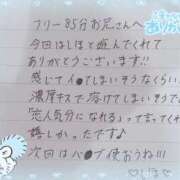 フリー85分お兄さんへ
今回はしほと遊んでくれて
ありがとうございます!!
感じてイ●てしまいそうなくらい
濃厚キスで溶けてしまいそうで
「恋人気分になれる」って言ってくれて
嬉しかったです♪
次回はバ●ブ使おうね!!!
♡しほ♡